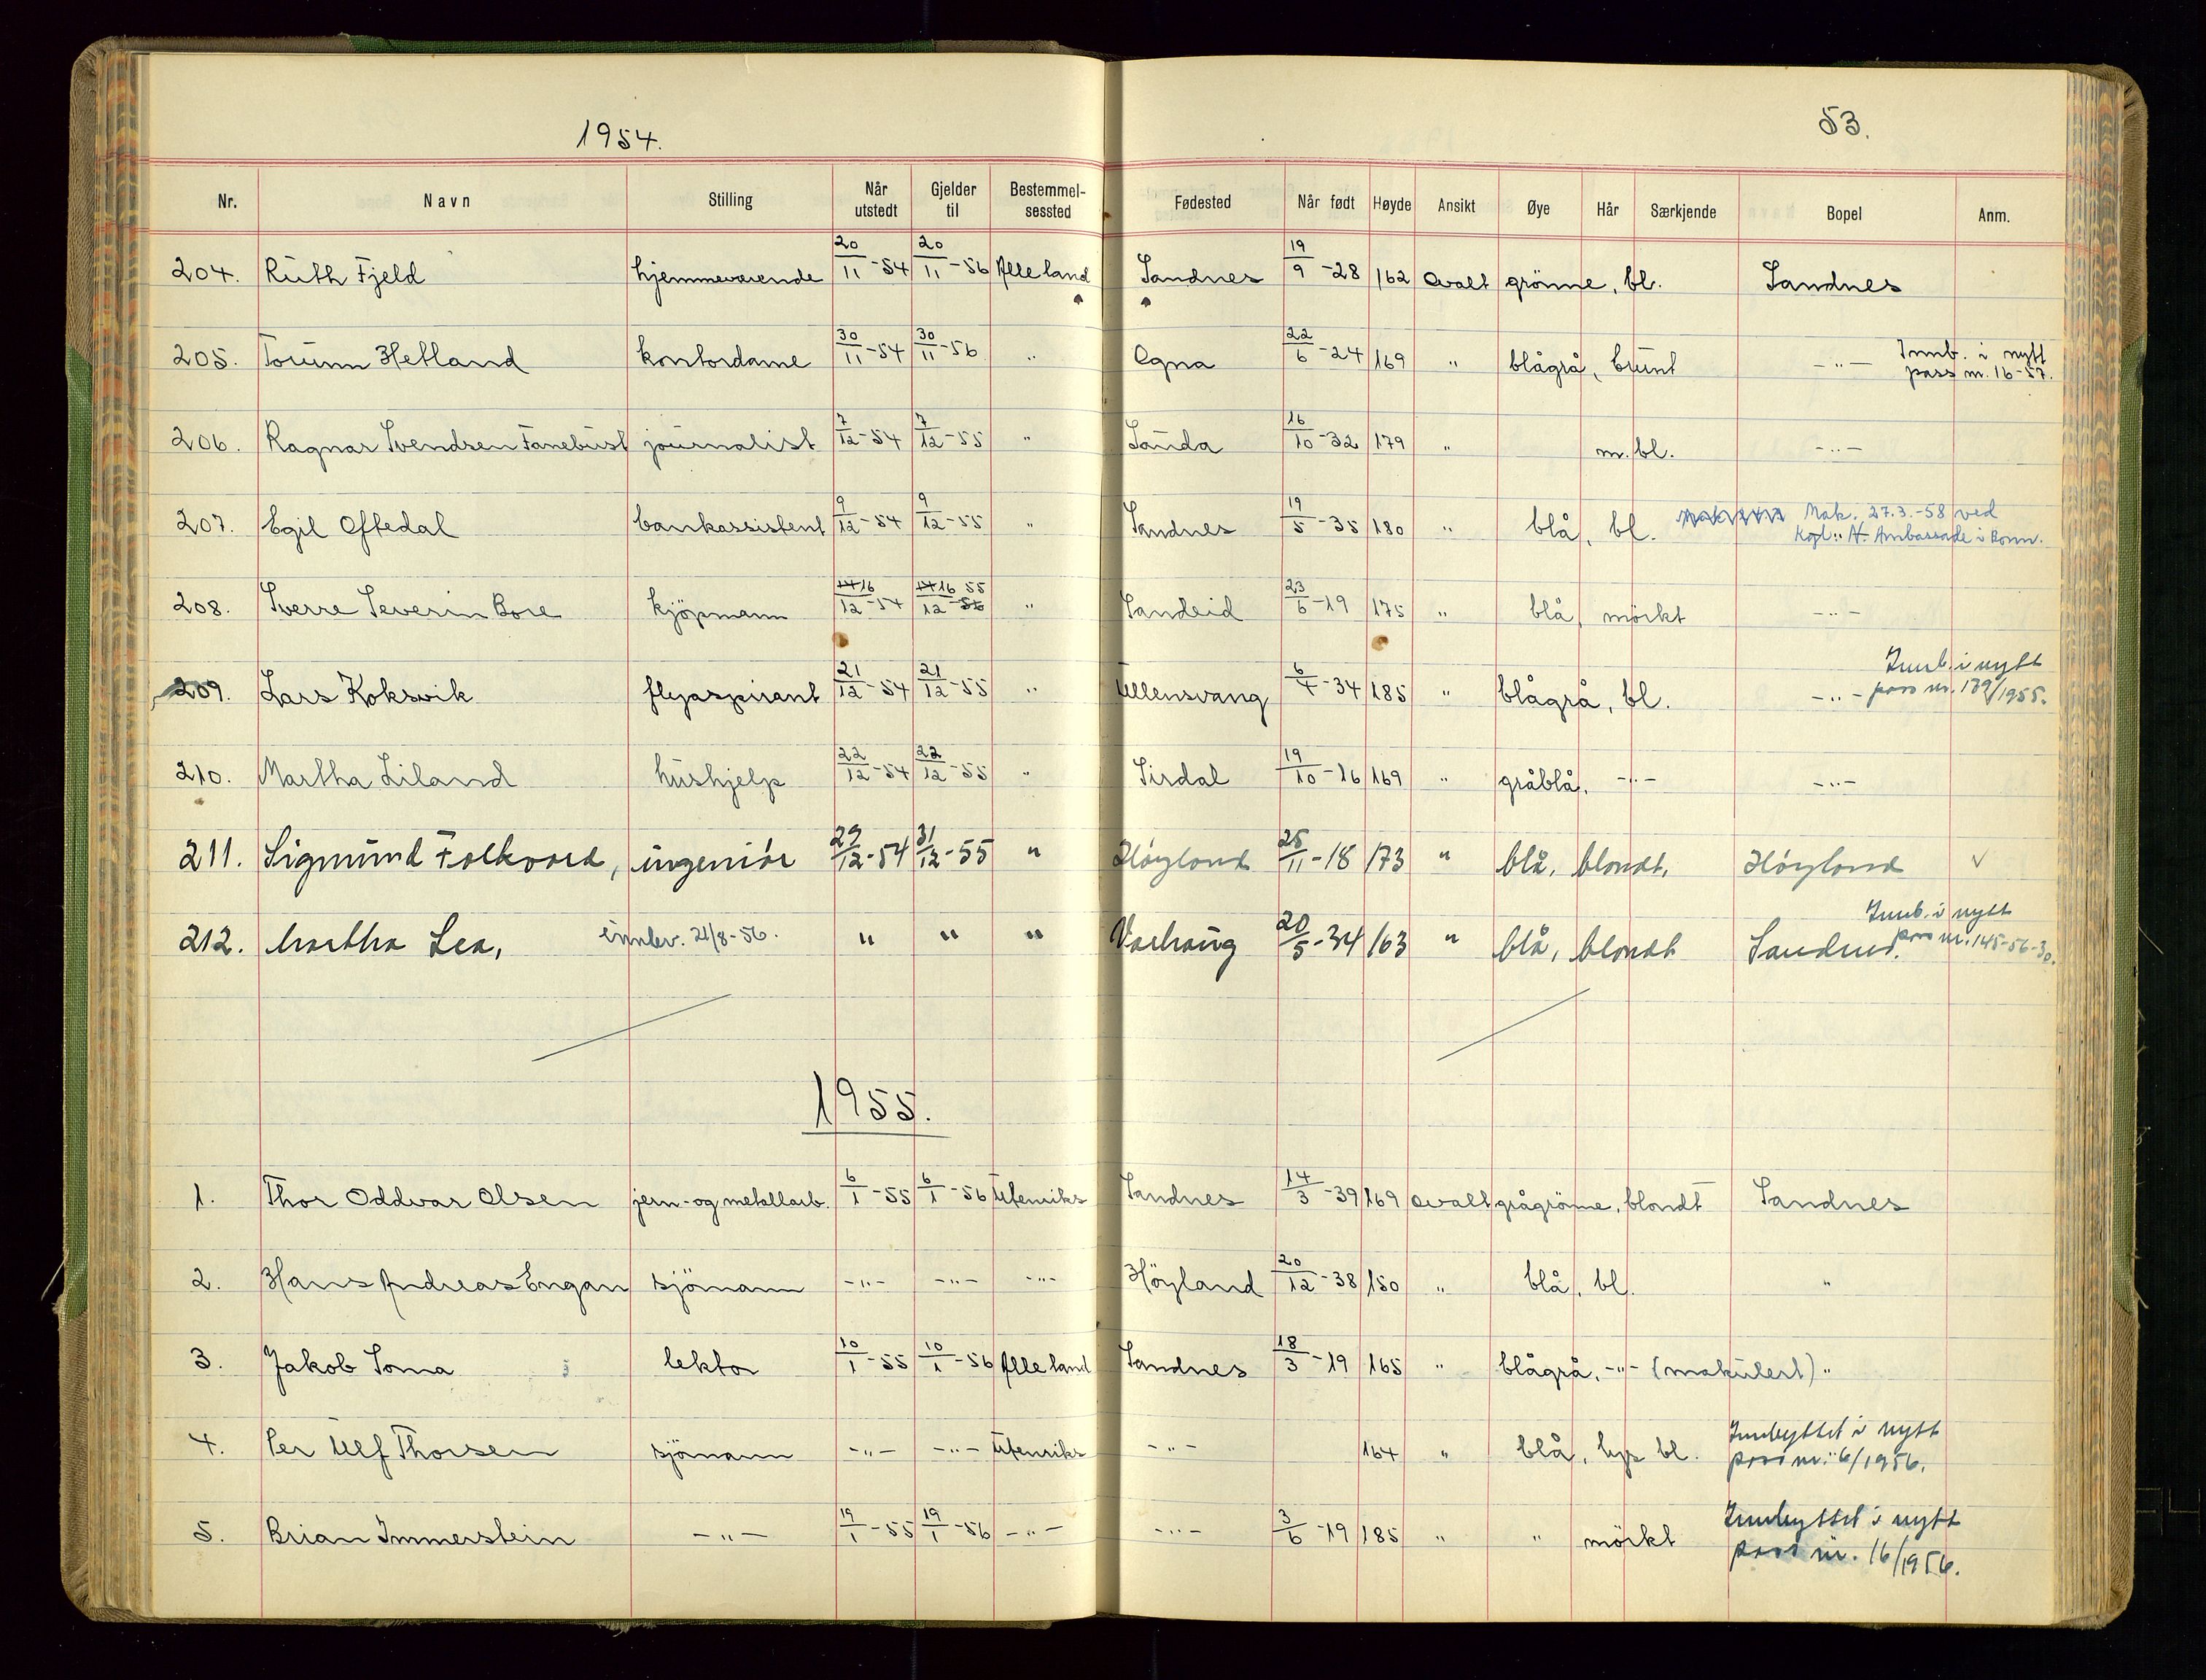 1954.
53.
Nr. Navn Stilling Når utstedt Gjelder til Bestemmel-sessted Fødested Når født Høyde Ansikt Øye Hår Særkjende Bopel Anm.
204. Ruth Fjeld hjemmeværende 20/11-54 20/11-56 Alle land Sandnes 19/9-28 162 Ovalt grönne, bl. Sandnes
205. Torunn Hetland kontordame 30/11-54 30/11-56 " Ogna 22/6-24 169 " blågrå, brunt -"- Innb. i nytt
pass nr. 16-57.
206. Ragnar Svendsen Fanebust journalist 7/12-54 7/12-55 " Sauda 16/10-32 179 " m. bl. -"-
207. Egil Oftedal bankassistent 9/12-54 9/12-55 " Sandnes 19/5-35 180 " blå, bl. Mak. 27.3.-58 ved
Kgl. N. Ambassade i Bonn.
208. Sverre Severin Bore kjöpmann 16/12-54 16/12-55 " Sandeid 23/6-19 175 " blå, mörkt -"-
209. Lars Koksvik flyaspirant 21/12-54 21/12-55 " Ullensvang 6/4-34 185 " blågrå, bl. -"- Innb. i nytt
pass nr. 139/1955.
210. Martha Liland hushjelp 22/12-54 22/12-55 " Sirdal 19/10-16 169 " gråblå, -"- -"-
211. Sigmund Folkvord, ingeniör 29/12-54 31/12-55 " Höyland 25/11-18 173 " blå, blondt, Höyland V
212. Martha Lea, innlev. 21/8-56. " " " Varhaug 20/5-34 163 " blå, blondt Sandnes. Innb. i nytt
pass nr. 145-56-30.
1955.
1. Thor Oddvar Olsen jern- og metallarb. 6/1-55 6/1-56 Utenriks Sandnes 14/3-39 169 ovalt grågrönne, blondt Sandnes
2. Hans Andreas Engan sjömann -"- -"- -"- Höyland 20/12-38 180 " blå, bl. "
3. Jakob Soma lektor 10/1-55 10/1-56 Alle land Sandnes 18/3-19 165 " blågrå, -"- (makulert) "
4. Per Ulf Thorsen sjömann -"- -"- Utenriks -"- 164 " blå, lys bl. Innbyttet i nytt
pass nr. 6/1956.
5. Brian Immerstein -"- 19/1-55 19/1-56 -"- -"- 3/6-19 185 " " mörkt Innbyttet i nytt
pass nr. 16/1956.